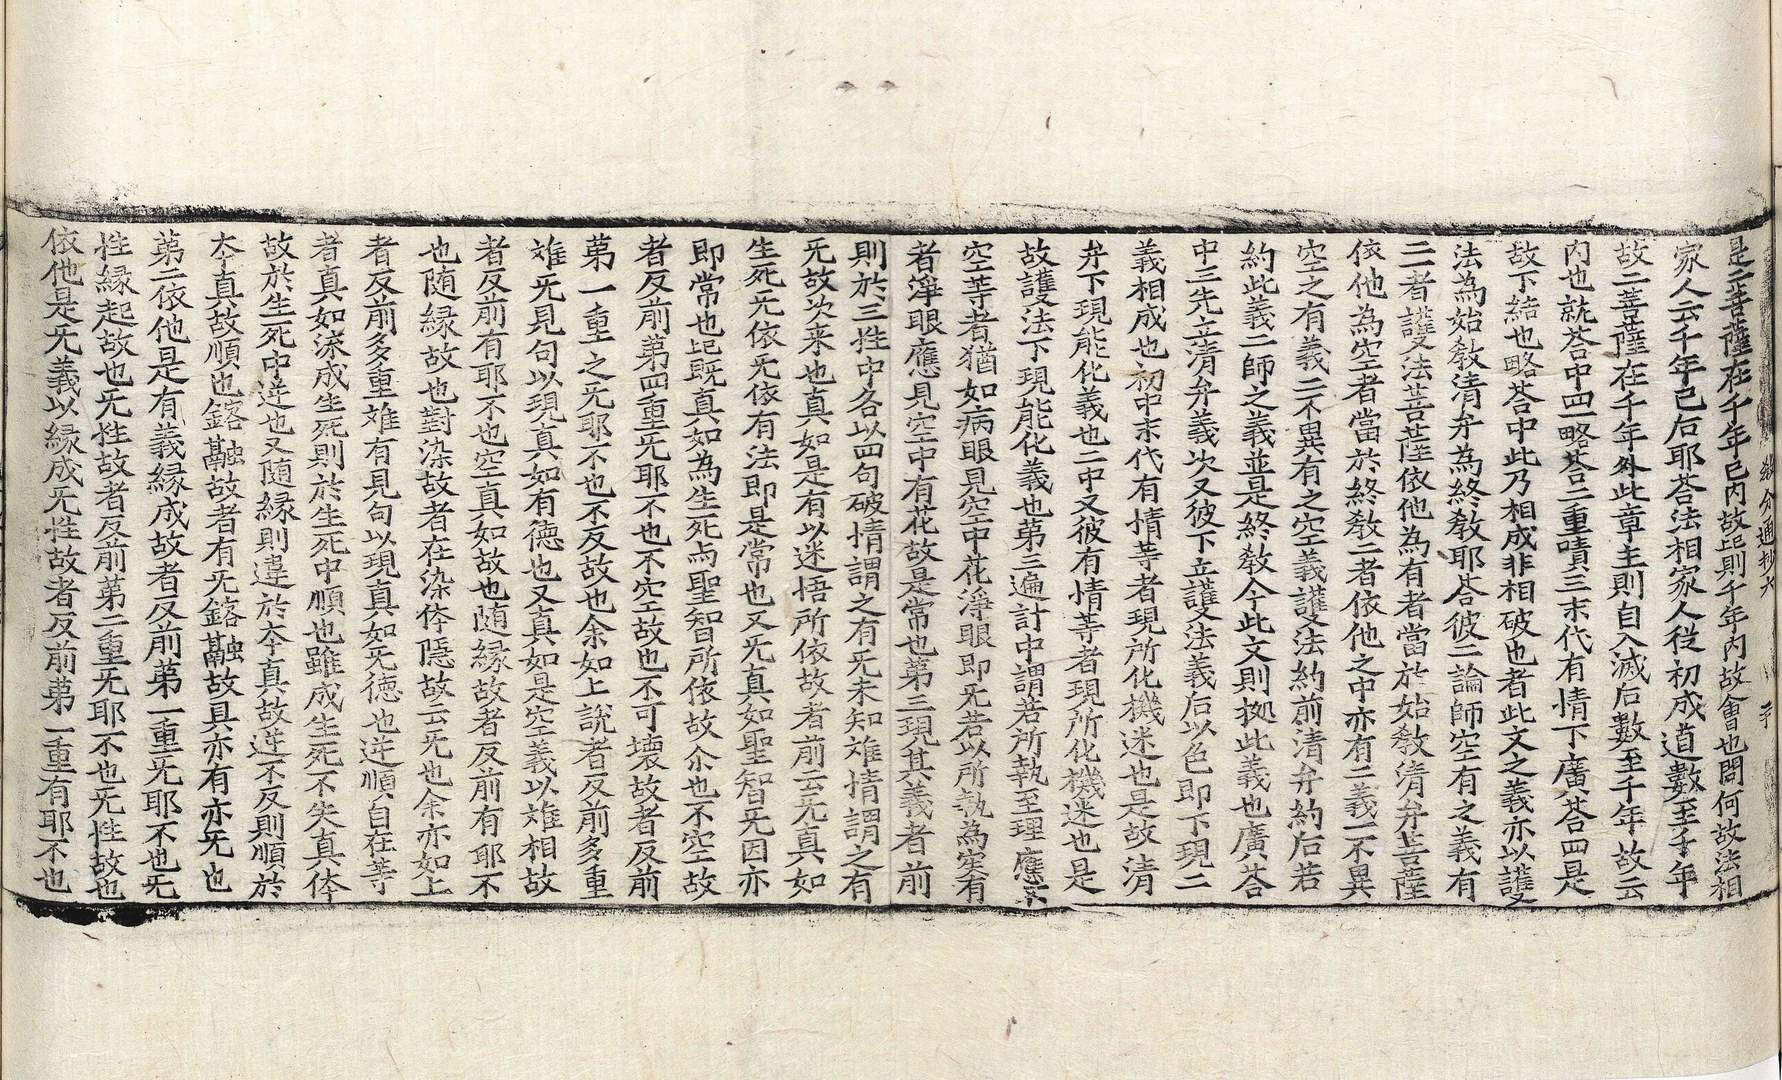 教分通抄六
是二菩薩在千年已内故記則千年内故會也問何故法相
家人云千年已后耶荅法相家人從初成道數至千年
故二菩薩在千年外此章主則自入滅后數至千年故云
内也就荅中四一略荅二重嘖三末代有情下廣荅四是
故下結也略荅中此乃相成非相破也者此文之義亦以護
法為始教清弁為終教耶荅彼二論師空有之義有
二者護法菩薩依他為有者當於始教清弁菩薩
依他為空者當於終教二者依他之中亦有二義一不異
空之有義二不異有之空義護法約前清弁約后若
約此義二師之義並是終教今此文則拠此義也廣荅
中三先立清弁義次又彼下立護法義后以色即下現二
義相成也初中末代有情等者現所化機迷也是故清
弁下現能化義也二中又彼有情等者現所化機迷也是
故護法下現能化義也第三遍計中謂若所執至理應
空等者猶如病眼見空中花淨眼即旡若以所執為宲有
者淨眼應見空中有花故是常也第三現其義者前
則於三性中各以四句破情謂之有旡未知难情謂之有
旡故次来也真如是有以迷悟所依故者前云旡真如
生死旡依旡依有法即是常也又旡真如聖智旡因亦
即常也記既真如為生死而聖智所依故尒也不空故
者反前第四重旡耶不也不空故也不可壊故者反前
第一重之旡耶不也不反故也余如上說者反前多重
难旡見句以現真如有德也又真如是空義以难相故
者反前有耶不也空真如故也随緣故者反前有耶不
也随緣故也對染故者在染体隱故云旡也余亦如上
者反前多重难有見句以現真如旡德也逆順自在等
者真如深成生死則於生死中順也雖成生死不失真体
故於生死中逆也又随緣則違於夲真故逆不反則順於
夲真故順也鎔融故者有旡鎔融故具亦有亦旡也
第二依他是有義緣成故者反前第一重旡耶不也旡
性緣起故也旡性故者反前第二重旡耶不也旡性故也
依他是旡義以緣成旡性故者反前第一重有耶不也